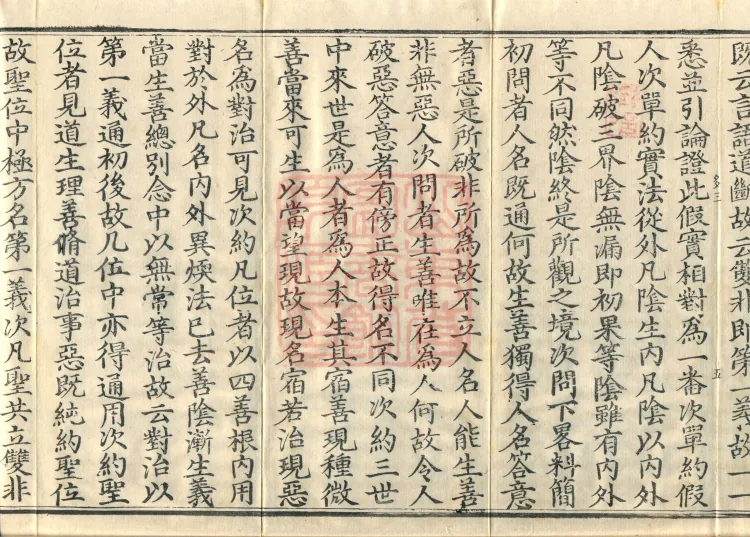 既云言語道斷故云雙非即第一義故一一
悉並引論證此假實相對為一番次單約假
人次單約實法從外凡陰生內凡陰以內外
凡陰破三界陰無漏即初果等陰雖有內外
等不同然陰終是所觀之境次問下畧料簡
初問者人名既通何故生善獨得人名答意
者惡是所破非所為故不立人名人能生善
非無惡人次問者生善唯在為人何故令人
破惡答意者有傍正故得名不同次約三世
中來世是為人者為人本生其宿善現種微
善當來可生以當望現故現名宿若治現惡
名為對治可見次約凡位者以四善根內用
對於外凡名內外異煗法已去善陰漸生義
當生善總別念中以無常等治故云對治以
第一義通初後故凡位中亦得通用次約聖
位者見道生理善脩道治事惡既純約聖位
故聖位中極方名第一義次凡聖共立雙非